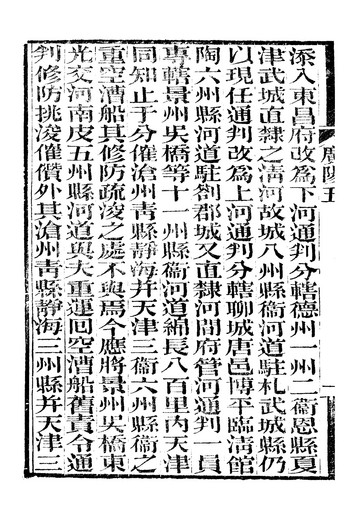 添入東昌府改為下河通判分轄德州一州二衞恩縣夏
津武城直隸之淸河故城八州縣衞河道駐札武城縣仍
以現任通判改為上河通判分轄聊城唐邑博平臨淸館
陶六州縣河道駐劄郡城又直隸河間府管河通判一員
專轄景州吳橋等十一州縣衞河道綿長八百里內天津
同知止于分催滄州靑縣靜海并天津三衞六州縣衞之
重空漕船其修防疏浚之處不與焉今應將景州吳橋東
光交河南皮五州縣河道與夫重運回空漕船舊責令通
判修防挑浚催儹外其滄州靑縣靜海三州縣并天津三